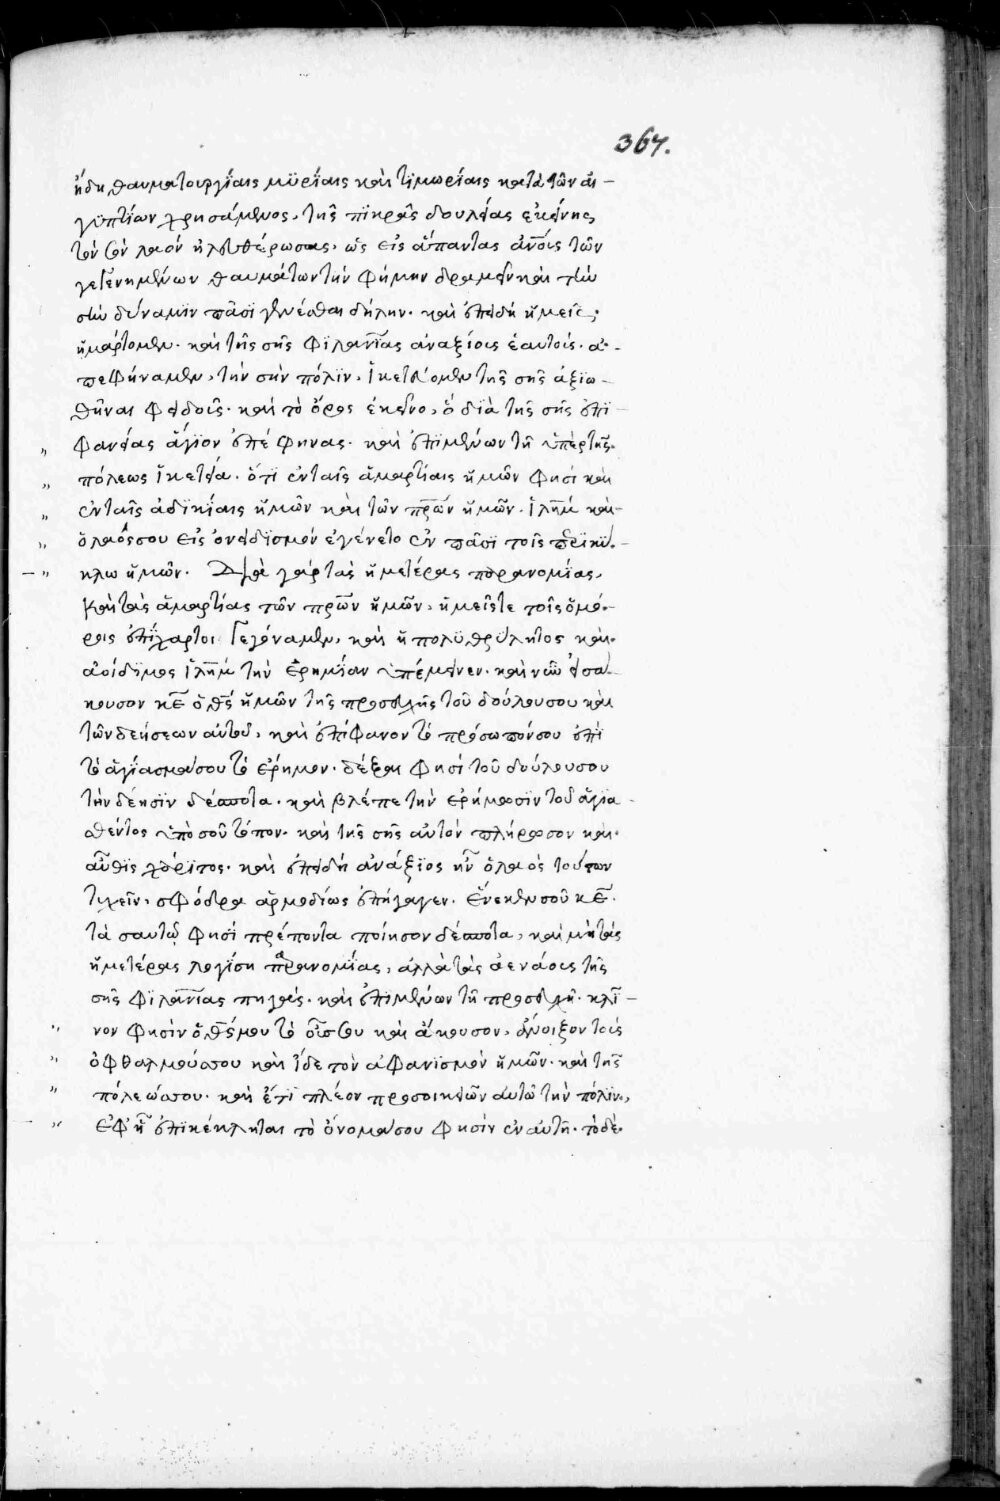 367.
ἤδη θαυματουργίαις μϋρίαις καὶ τϊμωρίαις κατὰ τῶν αἰ-
γϋπτίων χρησάμενος, τῆς πϊκρᾶς δουλείας ἐκείνης
τὸν σὸν λαὸν ἠλευθέρωσας, ὡς εἰς ἅπαντας ἀν̅ο̅υς τῶν
γεγενημένων θαυμάτων τὴν φήμην δραμεῖν καὶ τὴν
σὴν δύναμϊν πᾶσϊ γενέσθαι δήλην· καὶ ἐπειδὴ ἡμεῖς,
ἡμάρτομεν· καὶ τῆς σῆς φϊλαν̅ι̅ας ἀναξίους ἑαυτοὺς ἀ-
πεφήναμεν, τὴν σὴν πόλϊν, ἱκετεύομεν τῆς σῆς ἀξϊω-
θῆναι φειδοῦς· καὶ τὸ ὄρος ἐκεῖνο, ὃ δϊὰ τῆς σῆς ἐπϊ-
φανείας ἅγϊον ἀπέφηνας· καὶ ἐπϊμένων τῇ ὑπὲρ τῆς
πόλεως ἱκετεία· ὅτϊ ἐν ταῖς ἁμαρτίαις ἡμῶν φησὶ καὶ
ἐν ταῖς ἀδϊκίαις ἡμῶν καὶ τῶν πρ̅ω̅ν ἡμῶν, ἱλ̅η̅μ καὶ
ὁ λαός σου εἰς ὀνειδϊσμὸν ἐγένετο ἐν πᾶσϊ τοῖς περϊκύ-
κλω ἡμῶν· Δϊὰ γὰρ τὰς ἡμετέρας παρανομίας,
καὶ τὰς ἁμαρτίας τῶν πρ̅ω̅ν ἡμῶν, ἡμεῖς τε τοῖς ὁμό-
ροις ἐπίχαρτοι γεγόναμεν, καὶ ἡ πολϋθρύλητος καὶ
ἀοίδϊμος ἱλ̅η̅μ τὴν ἐρημίαν ὑπέμεινεν· καὶ νῦν εἰσά-
κουσον κ̅ε ὁ θ̅ς ἡμῶν τῆς προσευχῆς τοῦ δούλου σου καὶ
τῶν δεήσεων αὐτοῦ, καὶ ἐπίφανον τὸ πρόσωπόν σου ἐπὶ
τὸ ἁγίασμά σου τὸ ἔρημον· δέξαι φησὶ τοῦ δούλου σου
τὴν δέησϊν δέσποτα· καὶ βλέπε τὴν ἐρήμωσϊν τοῦ ἁγϊα-
σθέντος ὑπὸ σοῦ τόπου· καὶ τῆς σῆς αὐτὸν πλήρωσον καὶ
αὖθϊς χάρϊτος· καὶ ἐπειδὴ ἀνάξϊος ἦν ὁ λαὸς τούτων
τυχεῖν, σφόδρα ἁρμοδίως ἐπήγαγεν· ἕνεκέν σου κ̅ε·
τὰ σαυτῷ φησὶ πρέποντα ποίησον δέσποτα, καὶ μὴ τὰς
ἡμετέρας λογίση παρανομίας, ἀλλὰ τὰς ἀενάους τῆς
σῆς φϊλαν̅ι̅ας πηγάς· καὶ ἐπϊμένων τῇ προσευχῇ· κλῖ-
νον φησὶν ὁ θ̅ς μου τὸ οὖς σου καὶ ἄκουσον, ἄνοιξον τοὺς
ὀφθαλμούς σου καὶ ἴδε τὸν ἀφανϊσμὸν ἡμῶν· καὶ τῆς
πόλεώς σου· καὶ ἔτϊ πλέον προσοικειῶν αὐτῶ τὴν πόλϊν,
ἐφ' ἧς ἐπϊκέκληται τὸ ὄνομά σου φησὶν ἐν αὐτῇ· τὸ δὲ